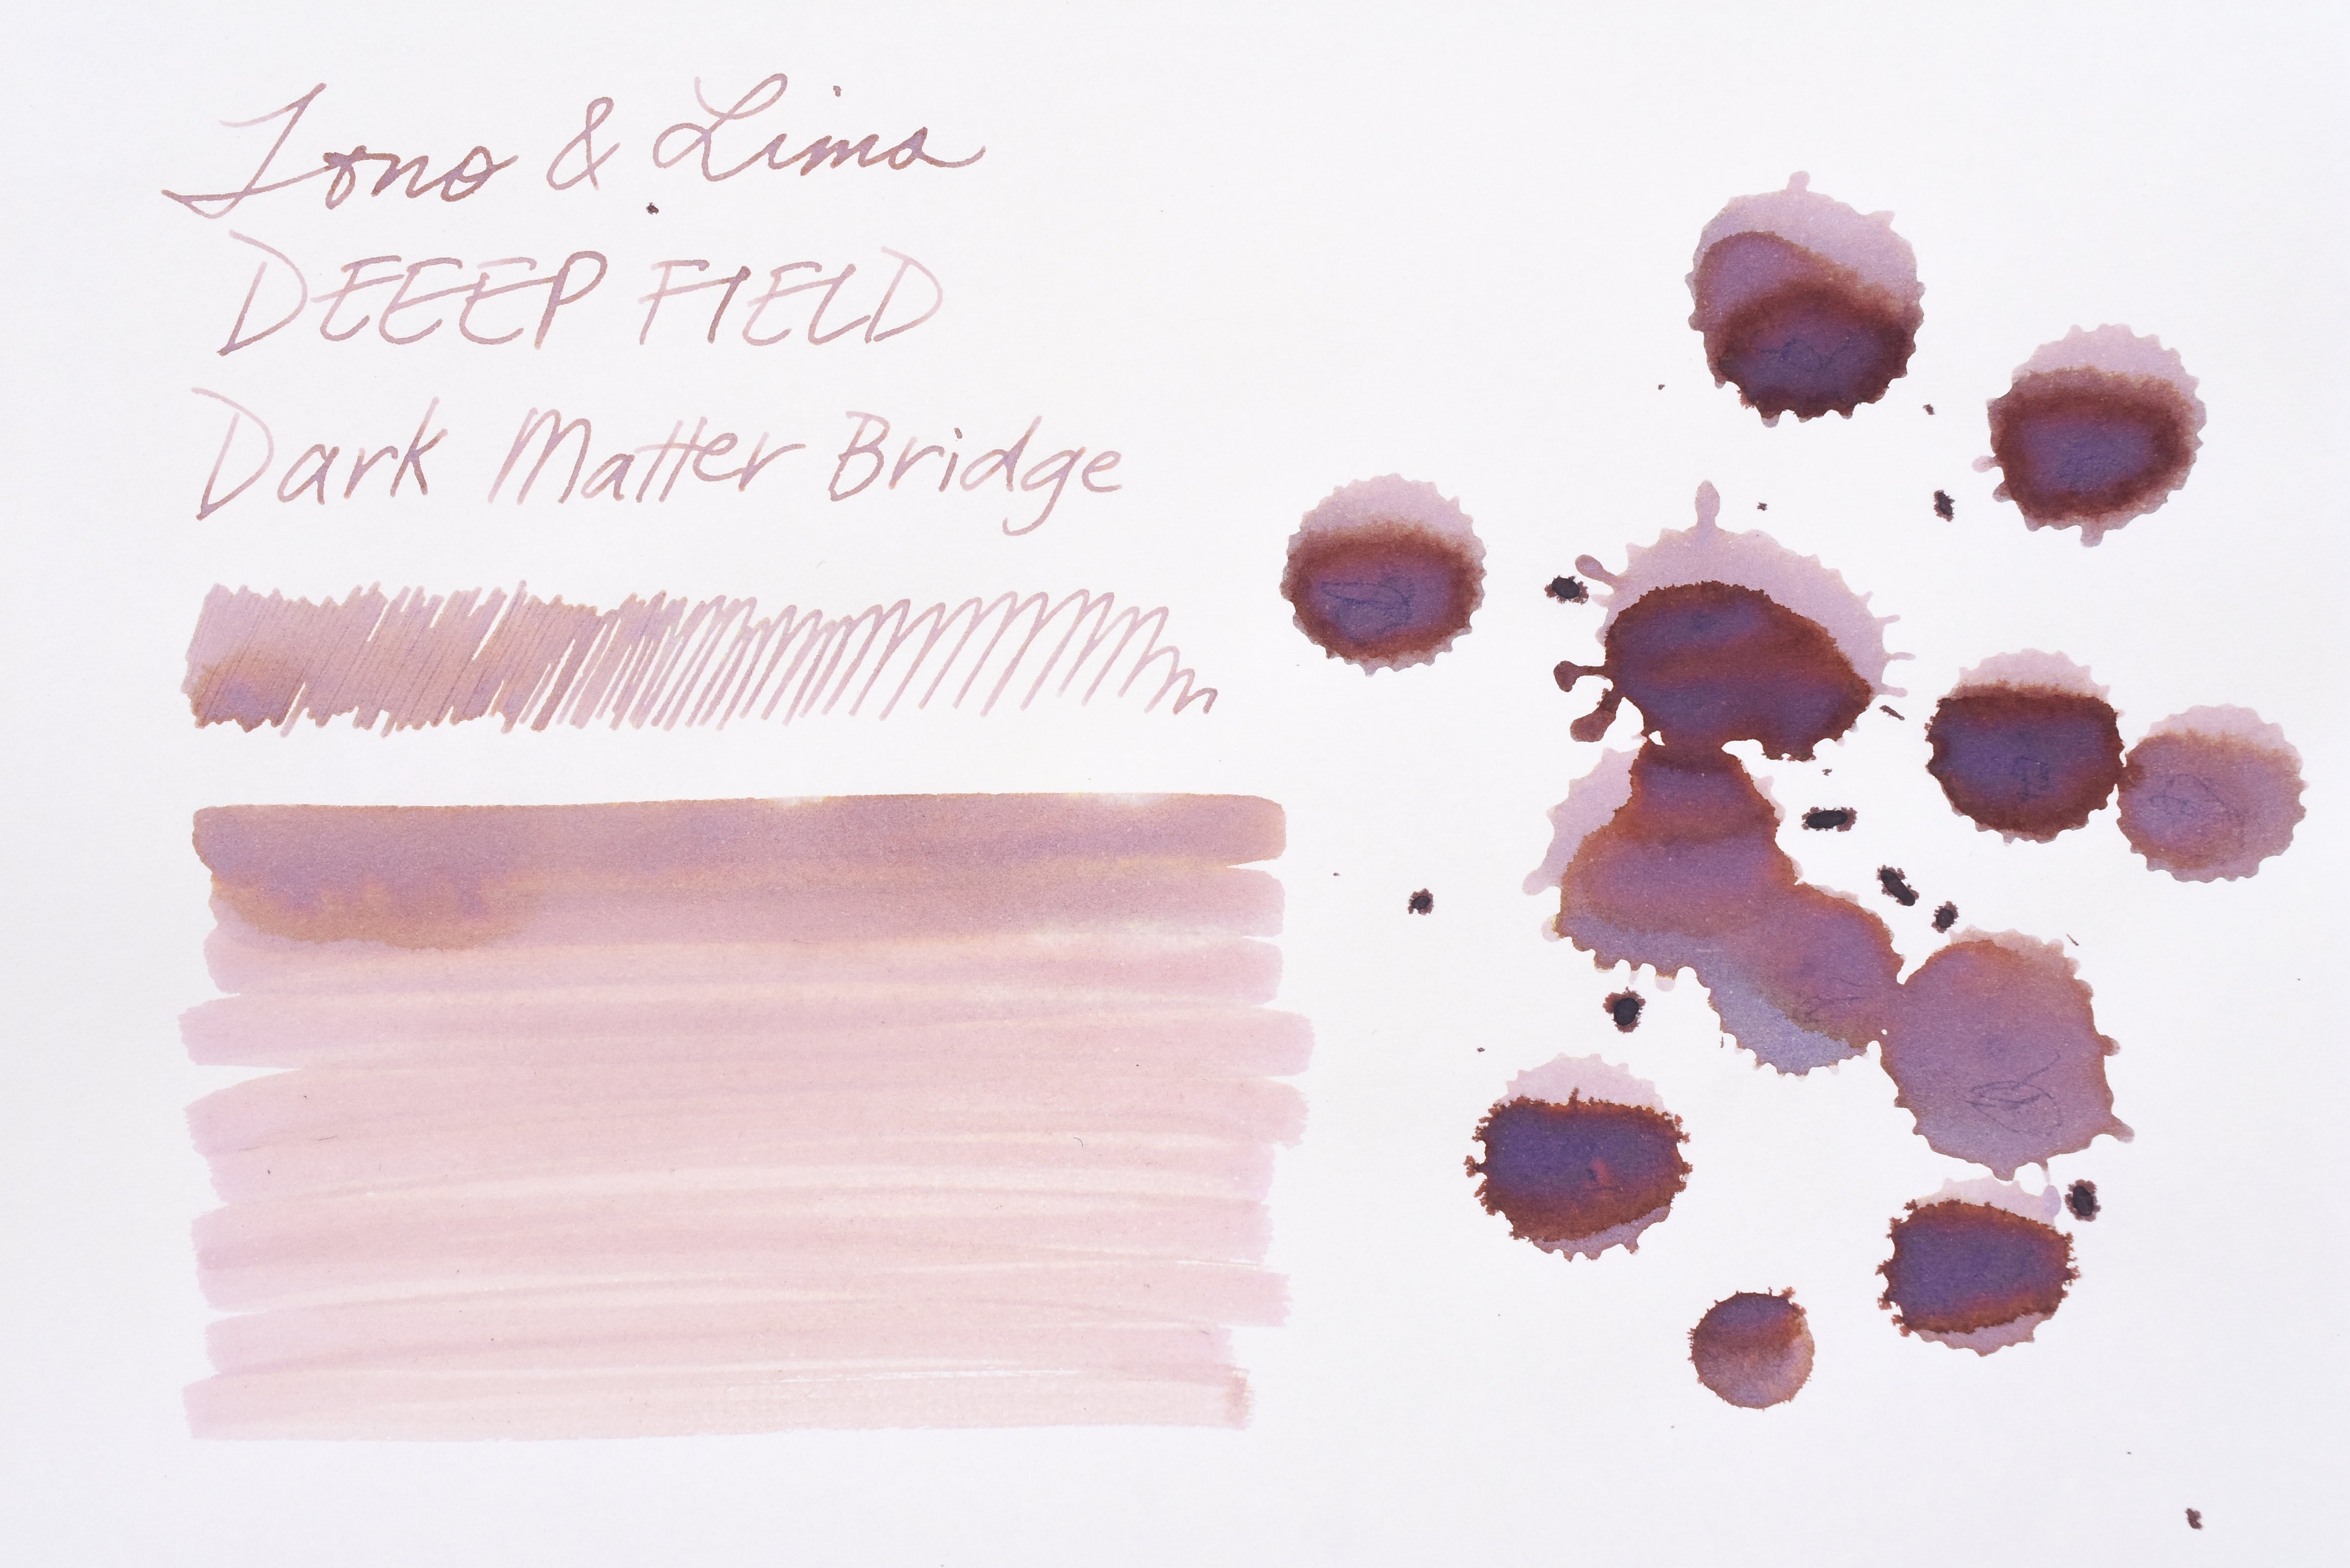 Tono & Lims
DEEEP FIELD
Dark Matter Bridge